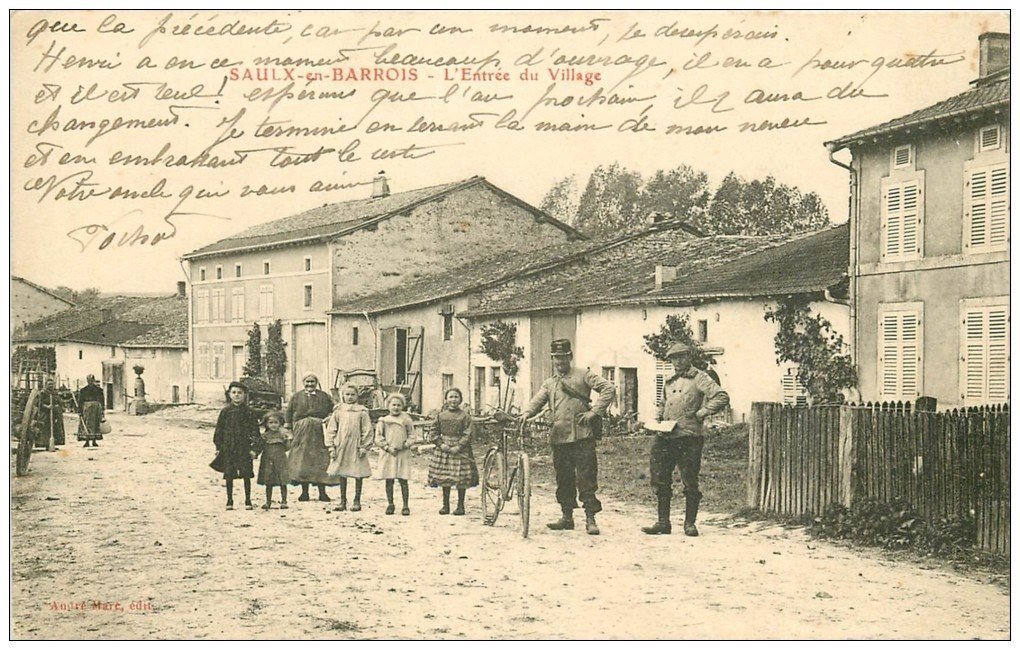 que la précédente, car par un moment, je desespérais.
Henri a en ce moment beaucoup d'ouvrage, il en a pour quatre
SAULX-en-BARROIS - L'Entrée du Village
et il est seul! espérons que l'an prochain, il y aura du
changement. Je termine en serrant la main de mon neveu
et en embrassant tout le reste
Votre oncle qui vous aime
André Marc, édit.